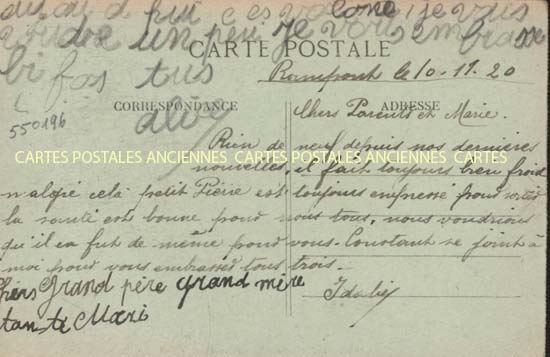 je vous
un peu je vous embrasse
CARTE POSTALE
bi fos tus
le 10-11-20
CORRESPONDANCE
ADRESSE
550196
Chers Parents et Marie.
Rien de neuf depuis nos dernières
CARTES POSTALES ANCIENNES CARTES POSTALES ANCIENNES CARTES
nouvelles, il fait toujours bien froid
malgré celà petit Pierre est toujours empressé pour sortir
la santé est bonne pour nous tous, nous voudrions
qu'il en fut de même pour vous. Constant se joint à
moi pour vous embrasser tous trois.
chers grand père grand mère
Idalie
tante Mari